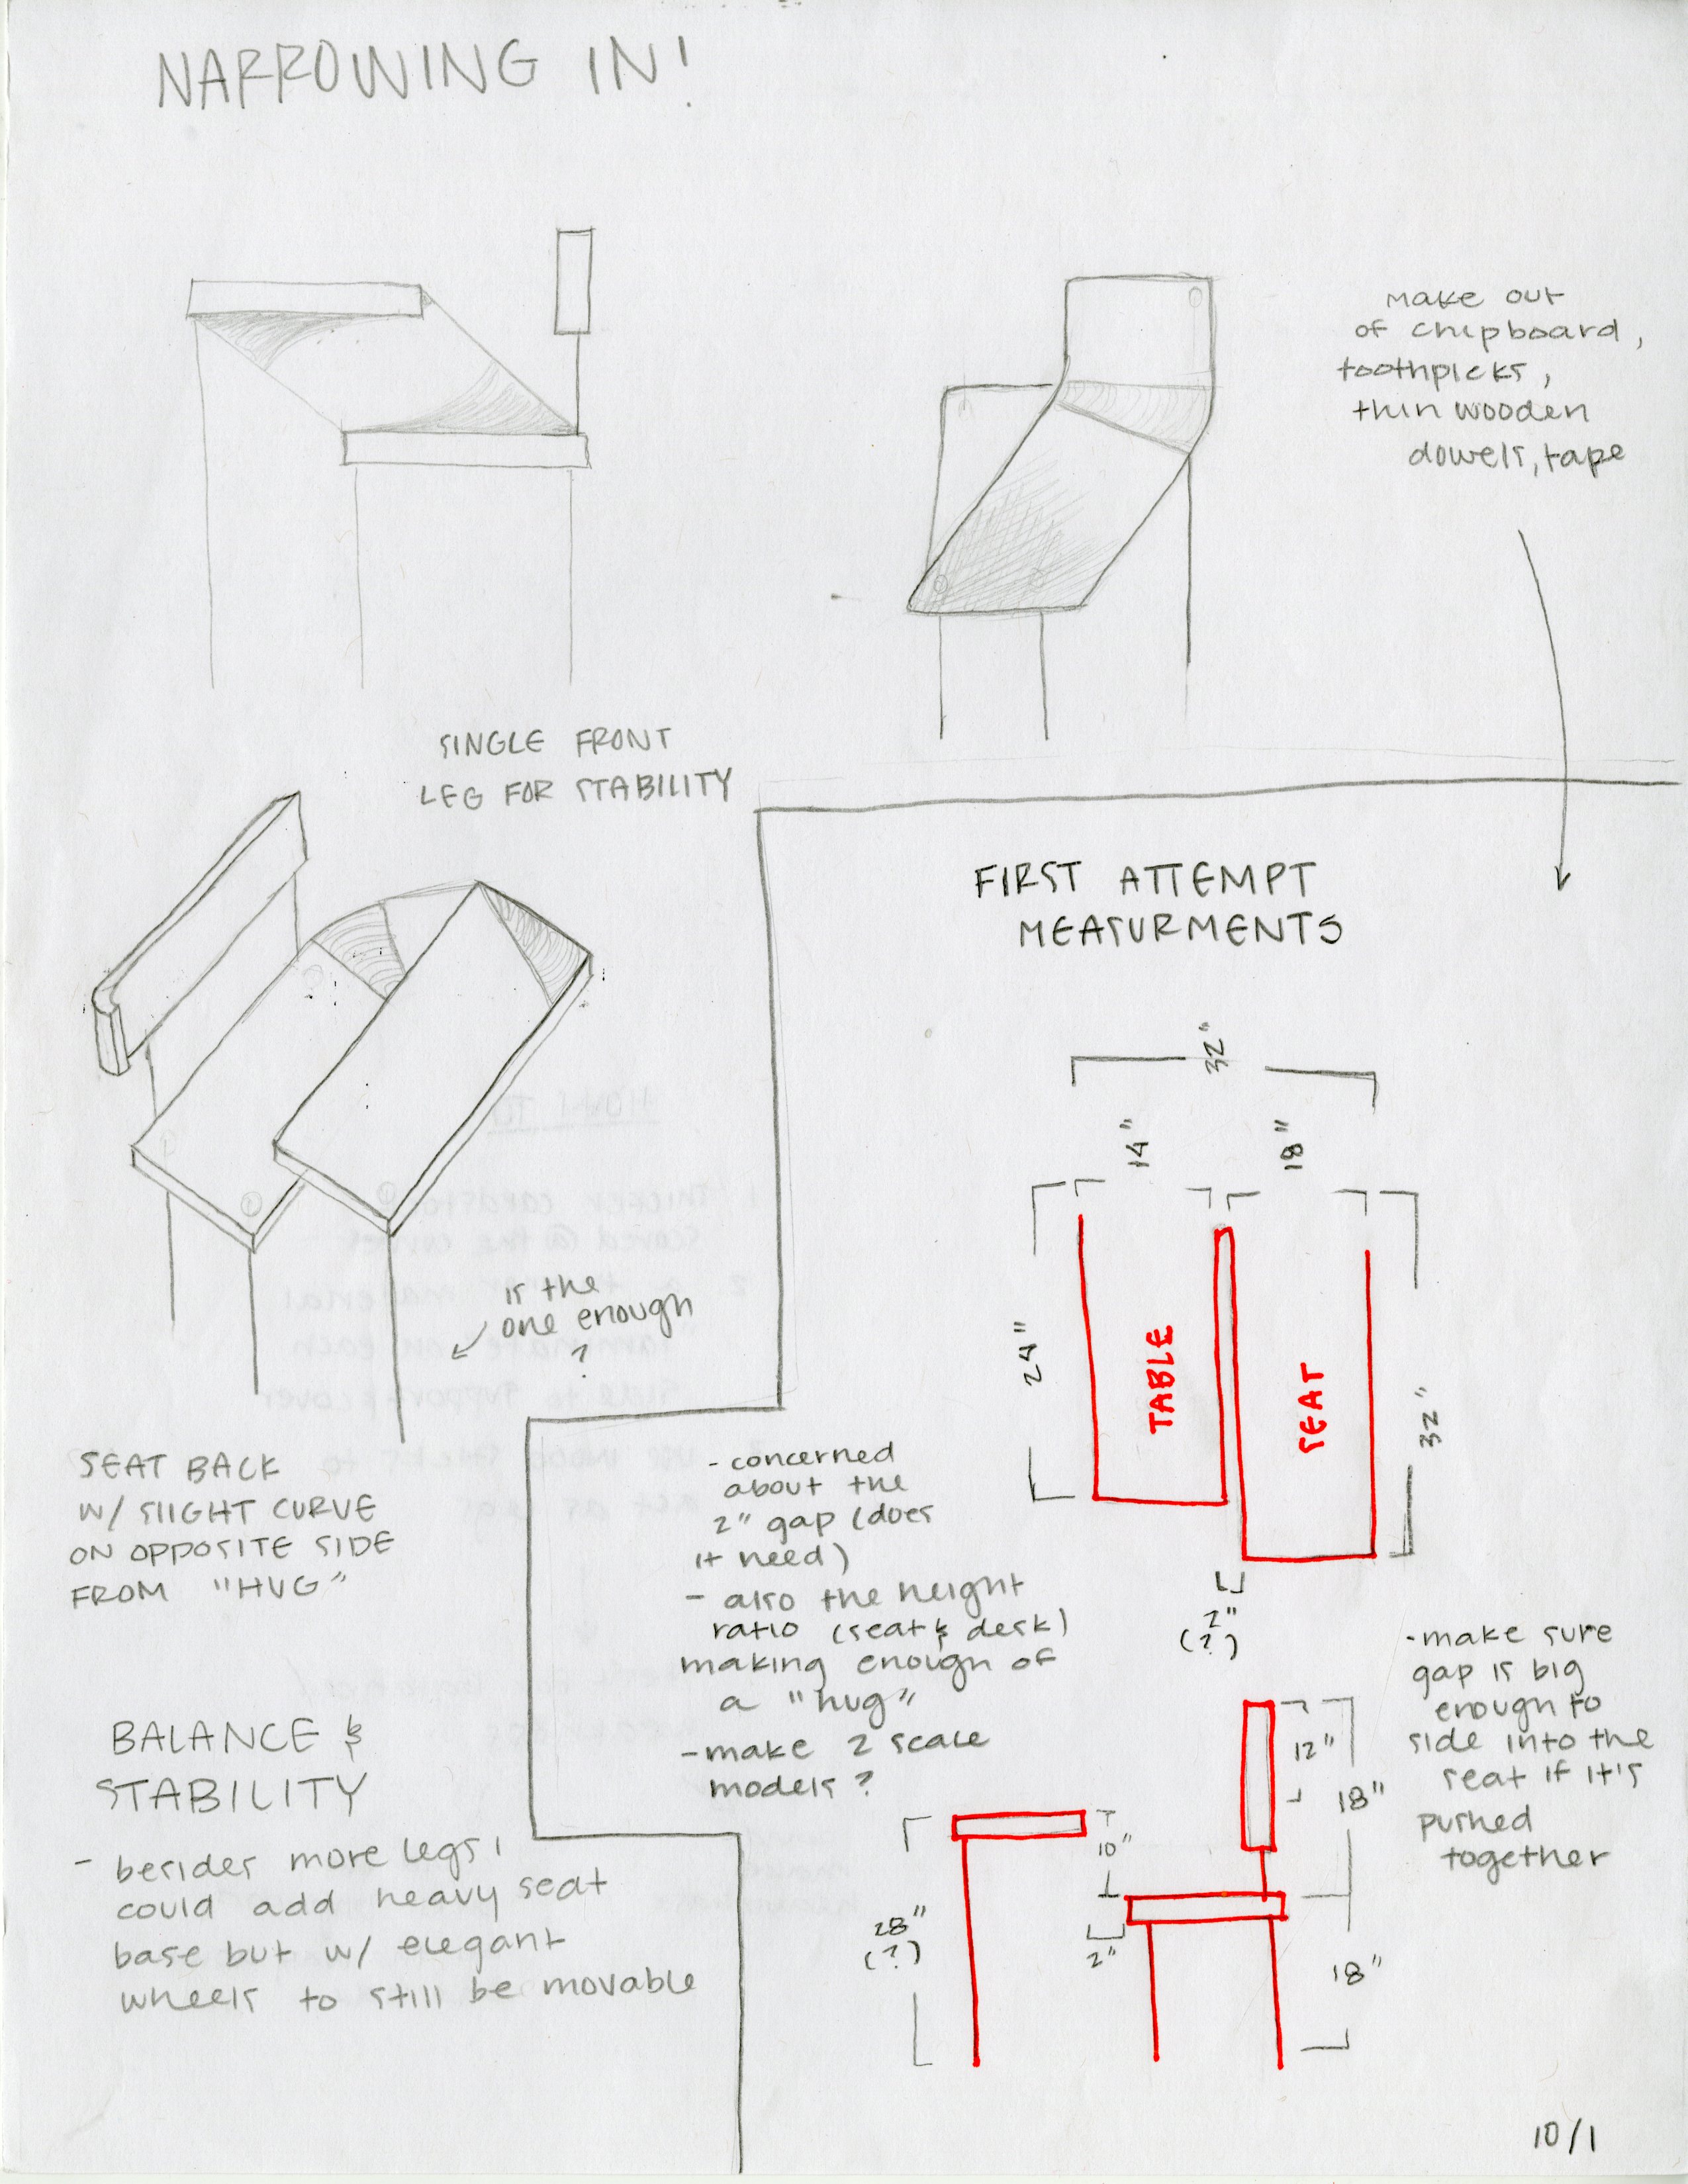 NARROWING IN!
make out
of chipboard,
toothpicks,
thin wooden
dowels, tape
SINGLE FRONT
LEG FOR STABILITY
is the
one enough
?
SEAT BACK
W/ SLIGHT CURVE
ON OPPOSITE SIDE
FROM "HUG"
BALANCE &
STABILITY
- besides more legs,
could add heavy seat
base but w/ elegant
wheels to still be movable
FIRST ATTEMPT
MEASURMENTS
32"
14"
18"
24"
TABLE
SEAT
32"
2"
(?)
- concerned
about the
2" gap (does
it need)
- also the height
ratio (seat & desk)
making enough of
a "hug"
- make 2 scale
models?
-make sure
gap is big
enough to
side into the
seat if it's
pushed
together
12"
18"
10"
28"
(?)
2"
18"
10/1
HOW TO